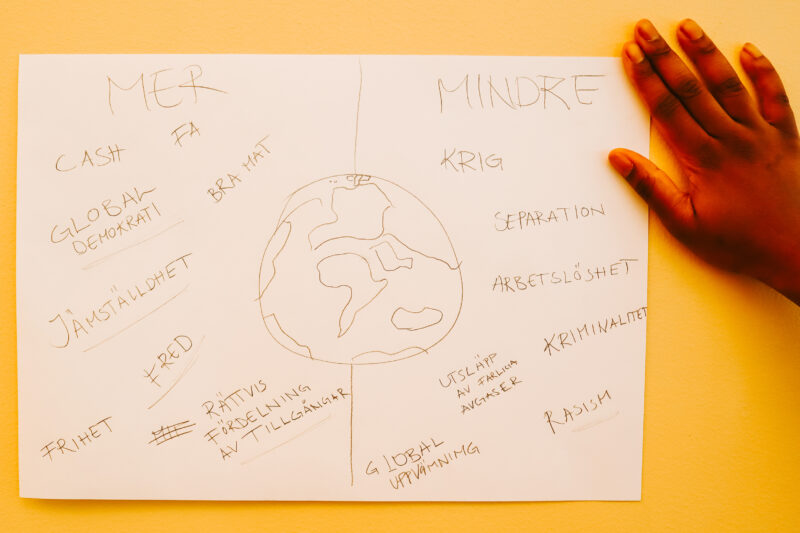 MER
CASH
FA
BRA MAT
GLOBAL
DEMOKRATI
JÄMSTÄLLDHET
FRED
FRIHET
RÄTTVIS
FÖRDELNING
AV TILLGÅNGAR
MINDRE
KRIG
SEPARATION
ARBETSLÖSHET
KRIMINALITET
UTSLÄPP
AV FARLIGA
AVGASER
RASISM
GLOBAL
UPPVÄMNIMG